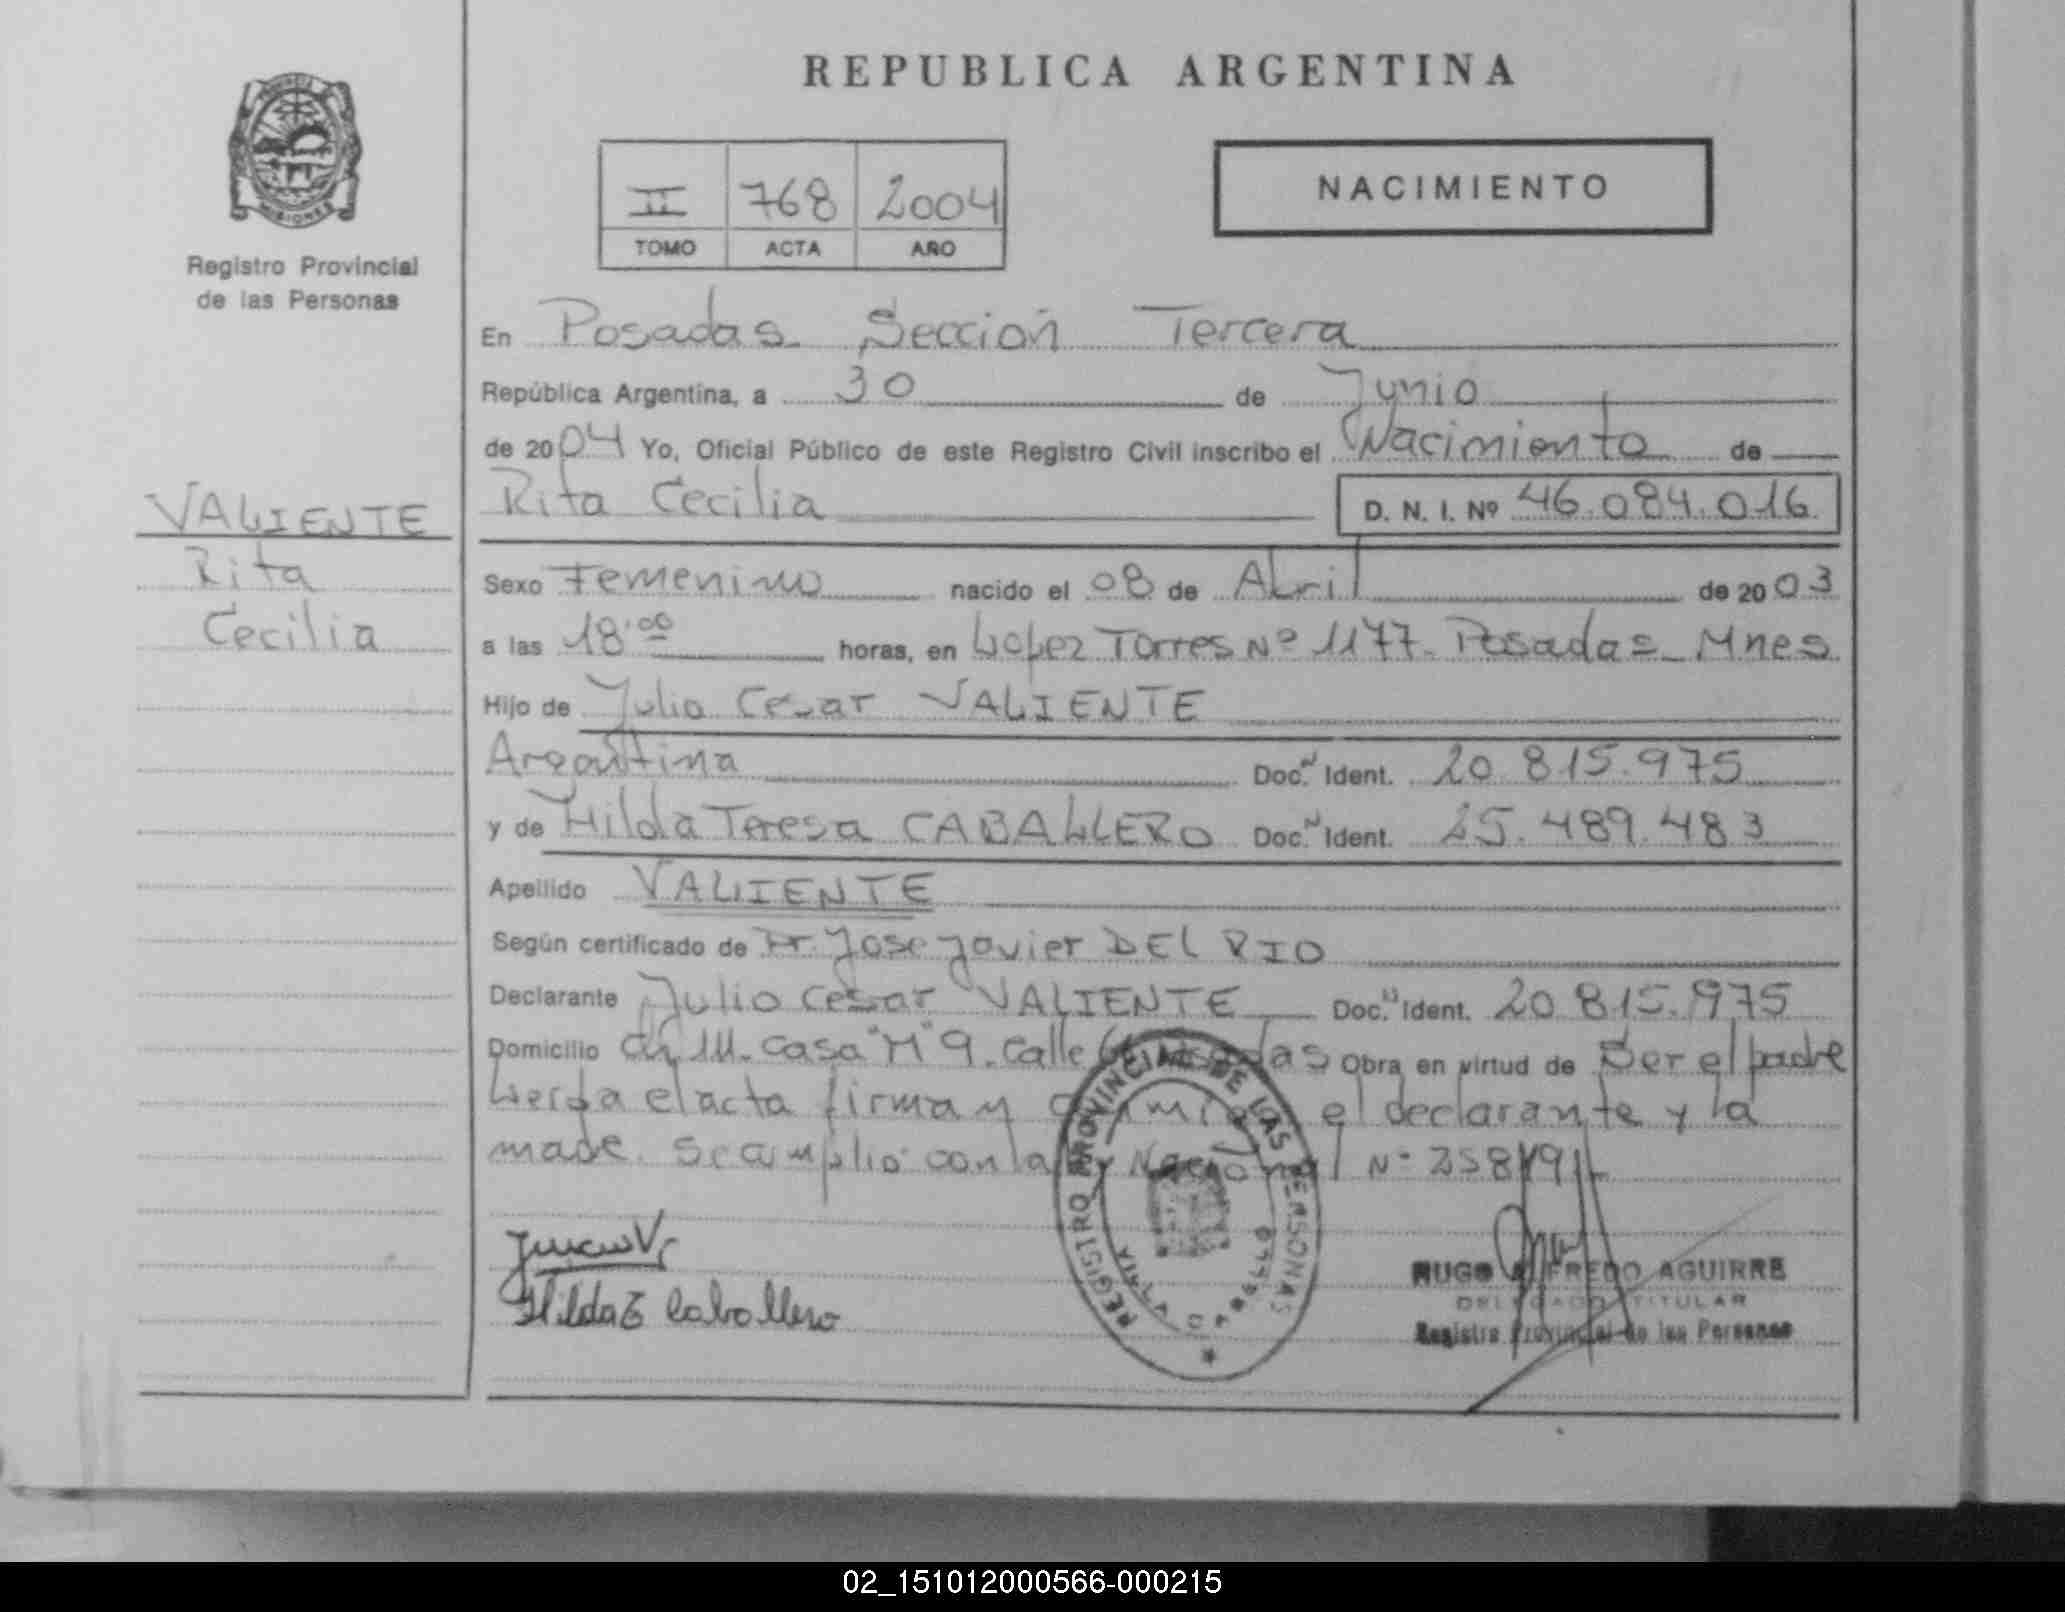 REPUBLICA ARGENTINA
PROVINCIA DE MISIONES
Registro Provincial
de las Personas
II 768 2004
TOMO ACTA AÑO
NACIMIENTO
En Posadas Sección Tercera
República Argentina, a 30 de Junio
de 2004 Yo, Oficial Público de este Registro Civil inscribo el Nacimiento de
Rita Cecilia D. N. I. Nº 46.084.016
VALIENTE
Rita
Cecilia
Sexo Femenino nacido el 08 de Abril de 2003
a las 18:00 horas, en Lopez Torres Nº 1177. Posadas Mnes
Hijo de Julio Cesar VALIENTE
Argentina Doc. Ident. 20.815.975
y de Hilda Teresa CABALLERO Doc. Ident. 25.489.483
Apellido VALIENTE
Según certificado de Dr. Jose Javier DEL RIO
Declarante Julio Cesar VALIENTE Doc. Ident. 20.815.975
Domicilio Ch 111. casa "M" 9. Calle Posadas Obra en virtud de Ser el padre
Leida el acta firman conmigo el declarante y la
madre. Se amplio con la Ley Nacional Nº
Hilda T Caballero
REGISTRO PROVINCIAL DE LAS PERSONAS
VILLA CABELLO
HUGO ALFREDO AGUIRRE
DELEGADO TITULAR
Registro Provincial de las Personas
02_151012000566-000215